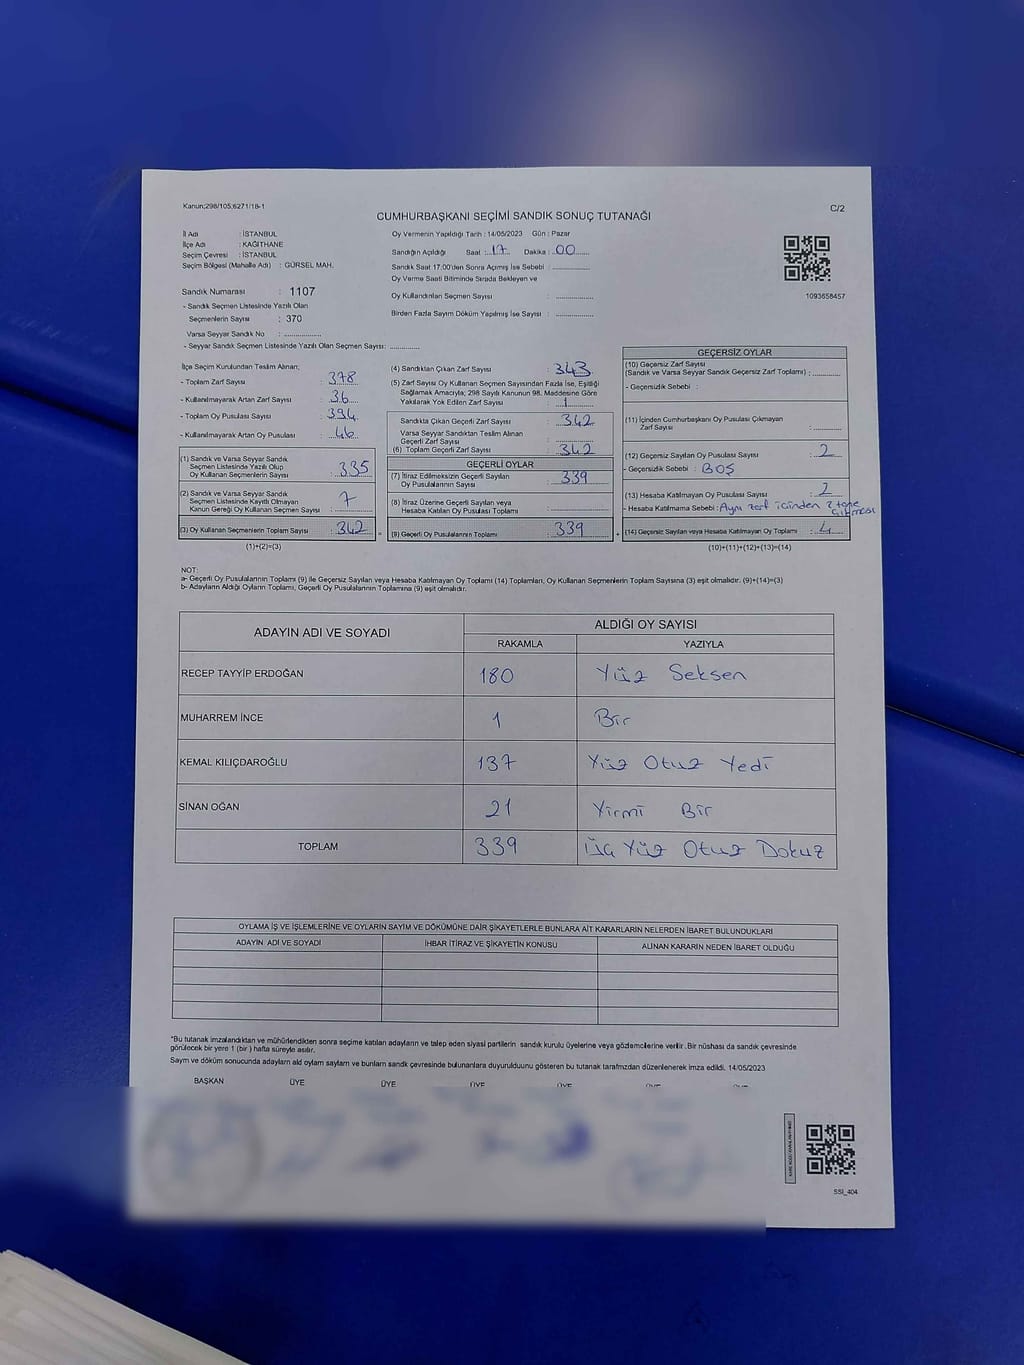 Kanun;298/105;6271/18-1
C/2
CUMHURBAŞKANI SEÇİMİ SANDIK SONUÇ TUTANAĞI
İl Adı : İSTANBUL
İlçe Adı : KAĞITHANE
Seçim Çevresi : İSTANBUL
Seçim Bölgesi (Mahalle Adı) : GÜRSEL MAH.
Sandık Numarası : 1107
- Sandık Seçmen Listesinde Yazılı Olan
Seçmenlerin Sayısı : 370
Varsa Seyyar Sandık No :
- Seyyar Sandık Seçmen Listesinde Yazılı Olan Seçmen Sayısı:
Oy Vermenin Yapıldığı Tarih : 14/05/2023 Gün : Pazar
Sandığın Açıldığı Saat : 17 Dakika : 00
Sandık Saat 17:00'den Sonra Açımış İse Sebebi :
Oy Verme Saati Bitiminde Sırada Bekleyen ve
Oy Kullandırılan Seçmen Sayısı :
Birden Fazla Sayım Döküm Yapılmış İse Sayısı :
1093658457
İlçe Seçim Kurulundan Teslim Alınan;
- Toplam Zarf Sayısı : 378
- Kullanılmayarak Artan Zarf Sayısı : 36
- Toplam Oy Pusulası Sayısı : 394
- Kullanılmayarak Artan Oy Pusulası : 46
(1) Sandık ve Varsa Seyyar Sandık
Seçmen Listesinde Yazılı Olup
Oy Kullanan Seçmenlerin Sayısı : 335
(2) Sandık ve Varsa Seyyar Sandık
Seçmen Listesinde Kayıtlı Olmayan
Kanun Gereği Oy Kullanan Seçmen Sayısı : 7
(3) Oy Kullanan Seçmenlerin Toplam Sayısı : 342
(1)+(2)=(3)
(4) Sandıktan Çıkan Zarf Sayısı : 343
(5) Zarf Sayısı Oy Kullanan Seçmen Sayısından Fazla İse, Eşitliği
Sağlamak Amacıyla; 298 Sayılı Kanunun 98. Maddesine Göre
Yakılarak Yok Edilen Zarf Sayısı : 1
Sandıkta Çıkan Geçerli Zarf Sayısı : 342
Varsa Seyyar Sandıktan Teslim Alınan
Geçerli Zarf Sayısı
(6) Toplam Geçerli Zarf Sayısı : 342
GEÇERLİ OYLAR
(7) İtiraz Edilmeksizin Geçerli Sayılan
Oy Pusulalarının Sayısı : 339
(8) İtiraz Üzerine Geçerli Sayılan veya
Hesaba Katılan Oy Pusulası Toplamı :
= (9) Geçerli Oy Pusulalarının Toplamı : 339
GEÇERSİZ OYLAR
(10) Geçersiz Zarf Sayısı
(Sandık ve Varsa Seyyar Sandık Geçersiz Zarf Toplamı) :
- Geçersizlik Sebebi :
(11) İçinden Cumhurbaşkanı Oy Pusulası Çıkmayan
Zarf Sayısı :
(12) Geçersiz Sayılan Oy Pusulası Sayısı : 2
- Geçersizlik Sebebi : BOŞ
(13) Hesaba Katılmayan Oy Pusulası Sayısı : 2
- Hesaba Katılmama Sebebi : Aynı zarf içinden 2 tane çıkması
+ (14) Geçersiz Sayılan veya Hesaba Katılmayan Oy Toplamı : 4
(10)+(11)+(12)+(13)=(14)
NOT:
a- Geçerli Oy Pusulalarının Toplamı (9) ile Geçersiz Sayılan veya Hesaba Katılmayan Oy Toplamı (14) Toplamları, Oy Kullanan Seçmenlerin Toplam Sayısına (3) eşit olmalıdır. (9)+(14)=(3)
b- Adayların Aldığı Oyların Toplamı, Geçerli Oy Pusulalarının Toplamına (9) eşit olmalıdır.
ADAYIN ADI VE SOYADI
ALDIĞI OY SAYISI
RAKAMLA YAZIYLA
RECEP TAYYİP ERDOĞAN 180 Yüz Seksen
MUHARREM İNCE 1 Bir
KEMAL KILIÇDAROĞLU 137 Yüz Otuz Yedi
SİNAN OĞAN 21 Yirmi Bir
TOPLAM 339 Üç Yüz Otuz Dokuz
OYLAMA İŞ VE İŞLEMLERİNE VE OYLARIN SAYIM VE DÖKÜMÜNE DAİR ŞİKAYETLERLE BUNLARA AİT KARARLARIN NELERDEN İBARET BULUNDUKLARI
ADAYIN ADI VE SOYADI İHBAR İTİRAZ VE ŞİKAYETİN KONUSU ALINAN KARARIN NEDEN İBARET OLDUĞU
"Bu tutanak imzalandıktan ve mühürlendikten sonra seçime katılan adayların ve talep eden siyasi partilerin sandık kurulu üyelerine veya gözlemcilerine verilir. Bir nüshası da sandık çevresinde
görülecek bir yere 1 (bir) hafta süreyle asılır.
Sayım ve döküm sonucunda adayların ald oyların sayımı ve bunların sandık çevresinde bulunanlara duyurulduunu gösteren bu tutanak tarafmızdan düzenlenerek imza edildi. 14/05/2023
BAŞKAN ÜYE ÜYE ÜYE ÜYE
SSİ_404